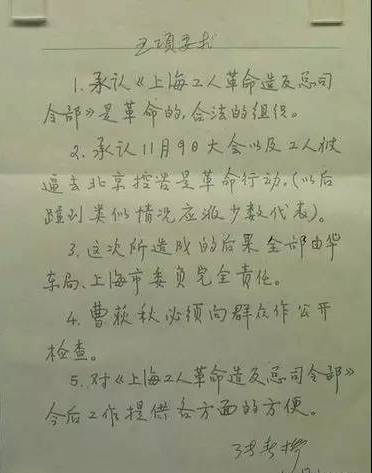 五项要求
1. 承认《上海工人革命造反总司
令部》是革命的,合法的组织。
2. 承认11月9日大会以及工人被
逼去北京控告是革命行动。(以后
碰到类似情况应派少数代表)。
3. 这次所造成的后果全部由华
东局、上海市委负完全责任。
4. 曹荻秋必须向群众作公开
检查。
5. 对《上海工人革命造反总司令部》
今后工作提供各方面的方便。
张春桥